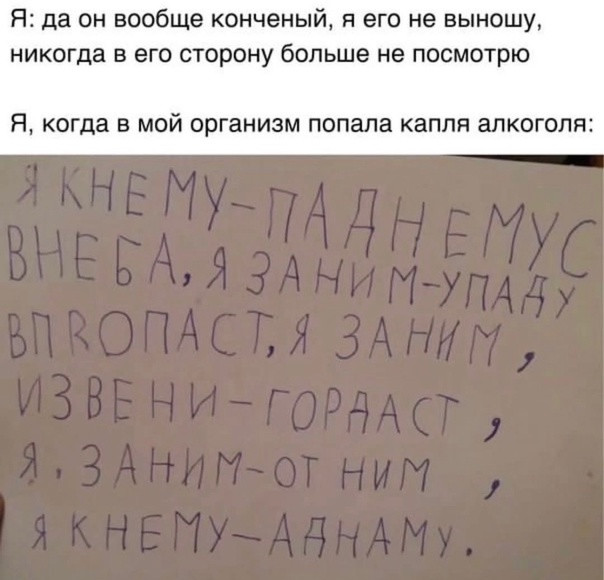 Я: да он вообще конченый, я его не выношу,
никогда в его сторону больше не посмотрю
Я, когда в мой организм попала капля алкоголя:
Я КНЕМУ-ПАДНЕМУС
ВНЕБА, Я ЗАНИМ-УПАДУ
ВПRОПАСТ, Я ЗАНИМ,
ИЗВЕНИ-ГОРДАСТ,
Я. ЗАНИМ-ОТ НИМ,
Я КНЕМУ-АДНАМУ.